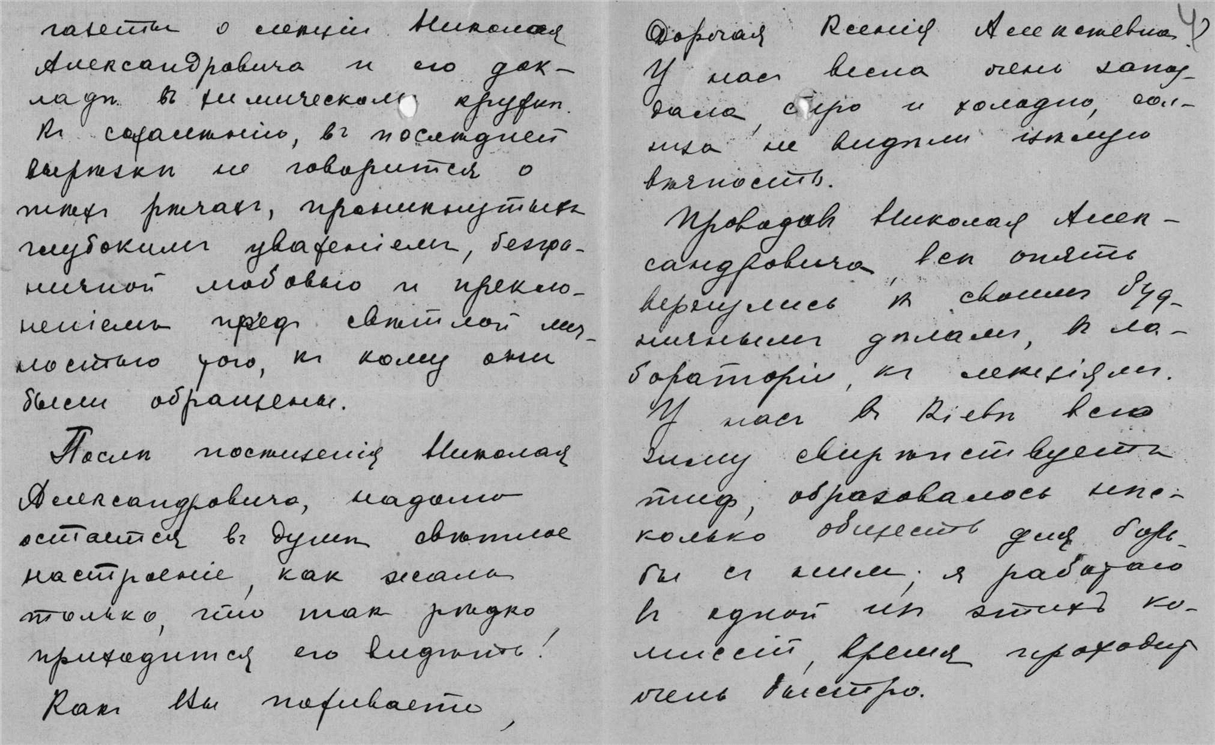 газеты о лекціи Николая
Александровича и его док-
ладѣ въ химическомъ кружкѣ.
Къ сожалѣнію, въ послѣдней
вырѣзкѣ не говорится о
тѣхъ рѣчахъ, проникнутыхъ
глубокимъ уваженіемъ, безгра-
ничной любовью и преклю-
неніемъ предъ свѣтлой лич-
ностью того, къ кому они
были обращены.
Послѣ посѣщенія Николая
Александровича, надолго
остается въ душѣ свѣтлое
настроеніе, какъ жаль
только, что такъ рѣдко
приходится его видѣть!
Какъ Вы поживаете,
4)
Дорогая Ксенія Алексѣевна!
У насъ весна очень запоз-
дала, сыро и холодно, сол-
нца не видѣли цѣлую
вѣчность.
Проводив Николая Алек-
сандровича, всѣ опять
вернулись къ своимъ буд-
ничнымъ дѣламъ, къ ла-
бораторіи, къ лекціямъ.
У насъ въ Кіевѣ всю
зиму свирѣпствуетъ
тиф, образовалось нѣс-
колько обществъ для борь-
бы съ ним; я работаю
въ одной изъ этихъ ко-
миссій, время проходит
очень быстро.